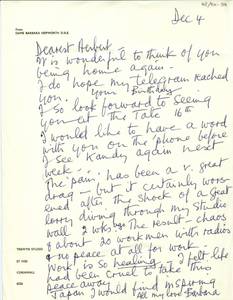 From
DAME BARBARA HEPWORTH D.B.E.
Dec 4
Dearest Herbert
It is wonderful to think of you
being home again –
I do hope my telegram reached
you.
your Birthday
I so look forward to seeing
you at the Tate 16th
I would like to have a word
with you on the phone before
I see again next
week –
The pain has been a v. great
drag – but it certainly wors-
ened after the shock of a great
lorry driving through my studio
wall 2 wks ago. The result – chaos
& about 20 workmen with radios
& no peace at all for work –
Work is so healing – I felt life
had been cruel to take this
peace away
Japan I would find
All my love Barbara
TREWYN STUDIO
ST IVES
CORNWALL